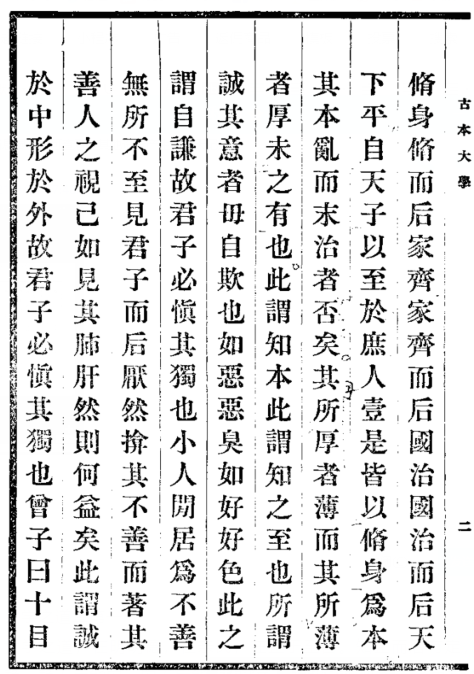 古本大學
二
脩身脩而后家齊家齊而后國治國治而后天
下平自天子以至於庶人壹是皆以脩身爲本
其本亂而末治者否矣其所厚者薄而其所薄
者厚未之有也此謂知本此謂知之至也所謂
誠其意者毋自欺也如惡惡臭如好好色此之
謂自謙故君子必愼其獨也小人閒居爲不善
無所不至見君子而后厭然揜其不善而著其
善人之視己如見其肺肝然則何益矣此謂誠
於中形於外故君子必愼其獨也曾子曰十目